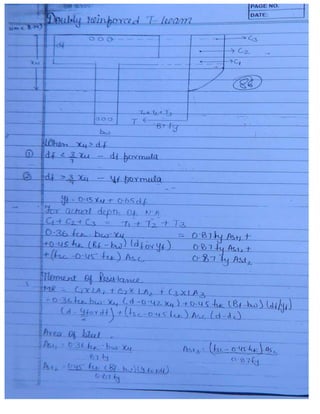 PAGE NO.
DATE:
Doubly reinforced T-beam
df
xu
C3
C2
C1
(86)
T1+T2+T3
T
0.87fy
bw
When xu > df
① df < 3/7 xu - df formula
② df > 3/7 xu - yf formula
yf = 0.15xu + 0.65df
For actual depth of N.A
C1 + C2 + C3 = T1 + T2 + T3
0.36 fck bw xu = 0.87 fy Ast1 +
+0.45 fck (Bf-bw) (df or yf) 0.87 fy Ast2 +
+(fsc-0.45 fck) Asc 0.87 fy Ast3
Moment of Resistance
MR = C1 x LA1 + C2 x LA2 + C3 x LA3
= 0.36 fck bw xu (d-0.42xu) + 0.45 fck (Bf-bw) (df/yf)
(d - yf or df) + (fsc-0.45 fck) Asc (d-dc)
Area of Steel -
Ast1 = 0.36 fck bw xu
0.87 fy
Ast3 = (fsc-0.45 fck) Asc
0.87fy
Ast2 = 0.45 fck (Bf-bw)
0.87fy